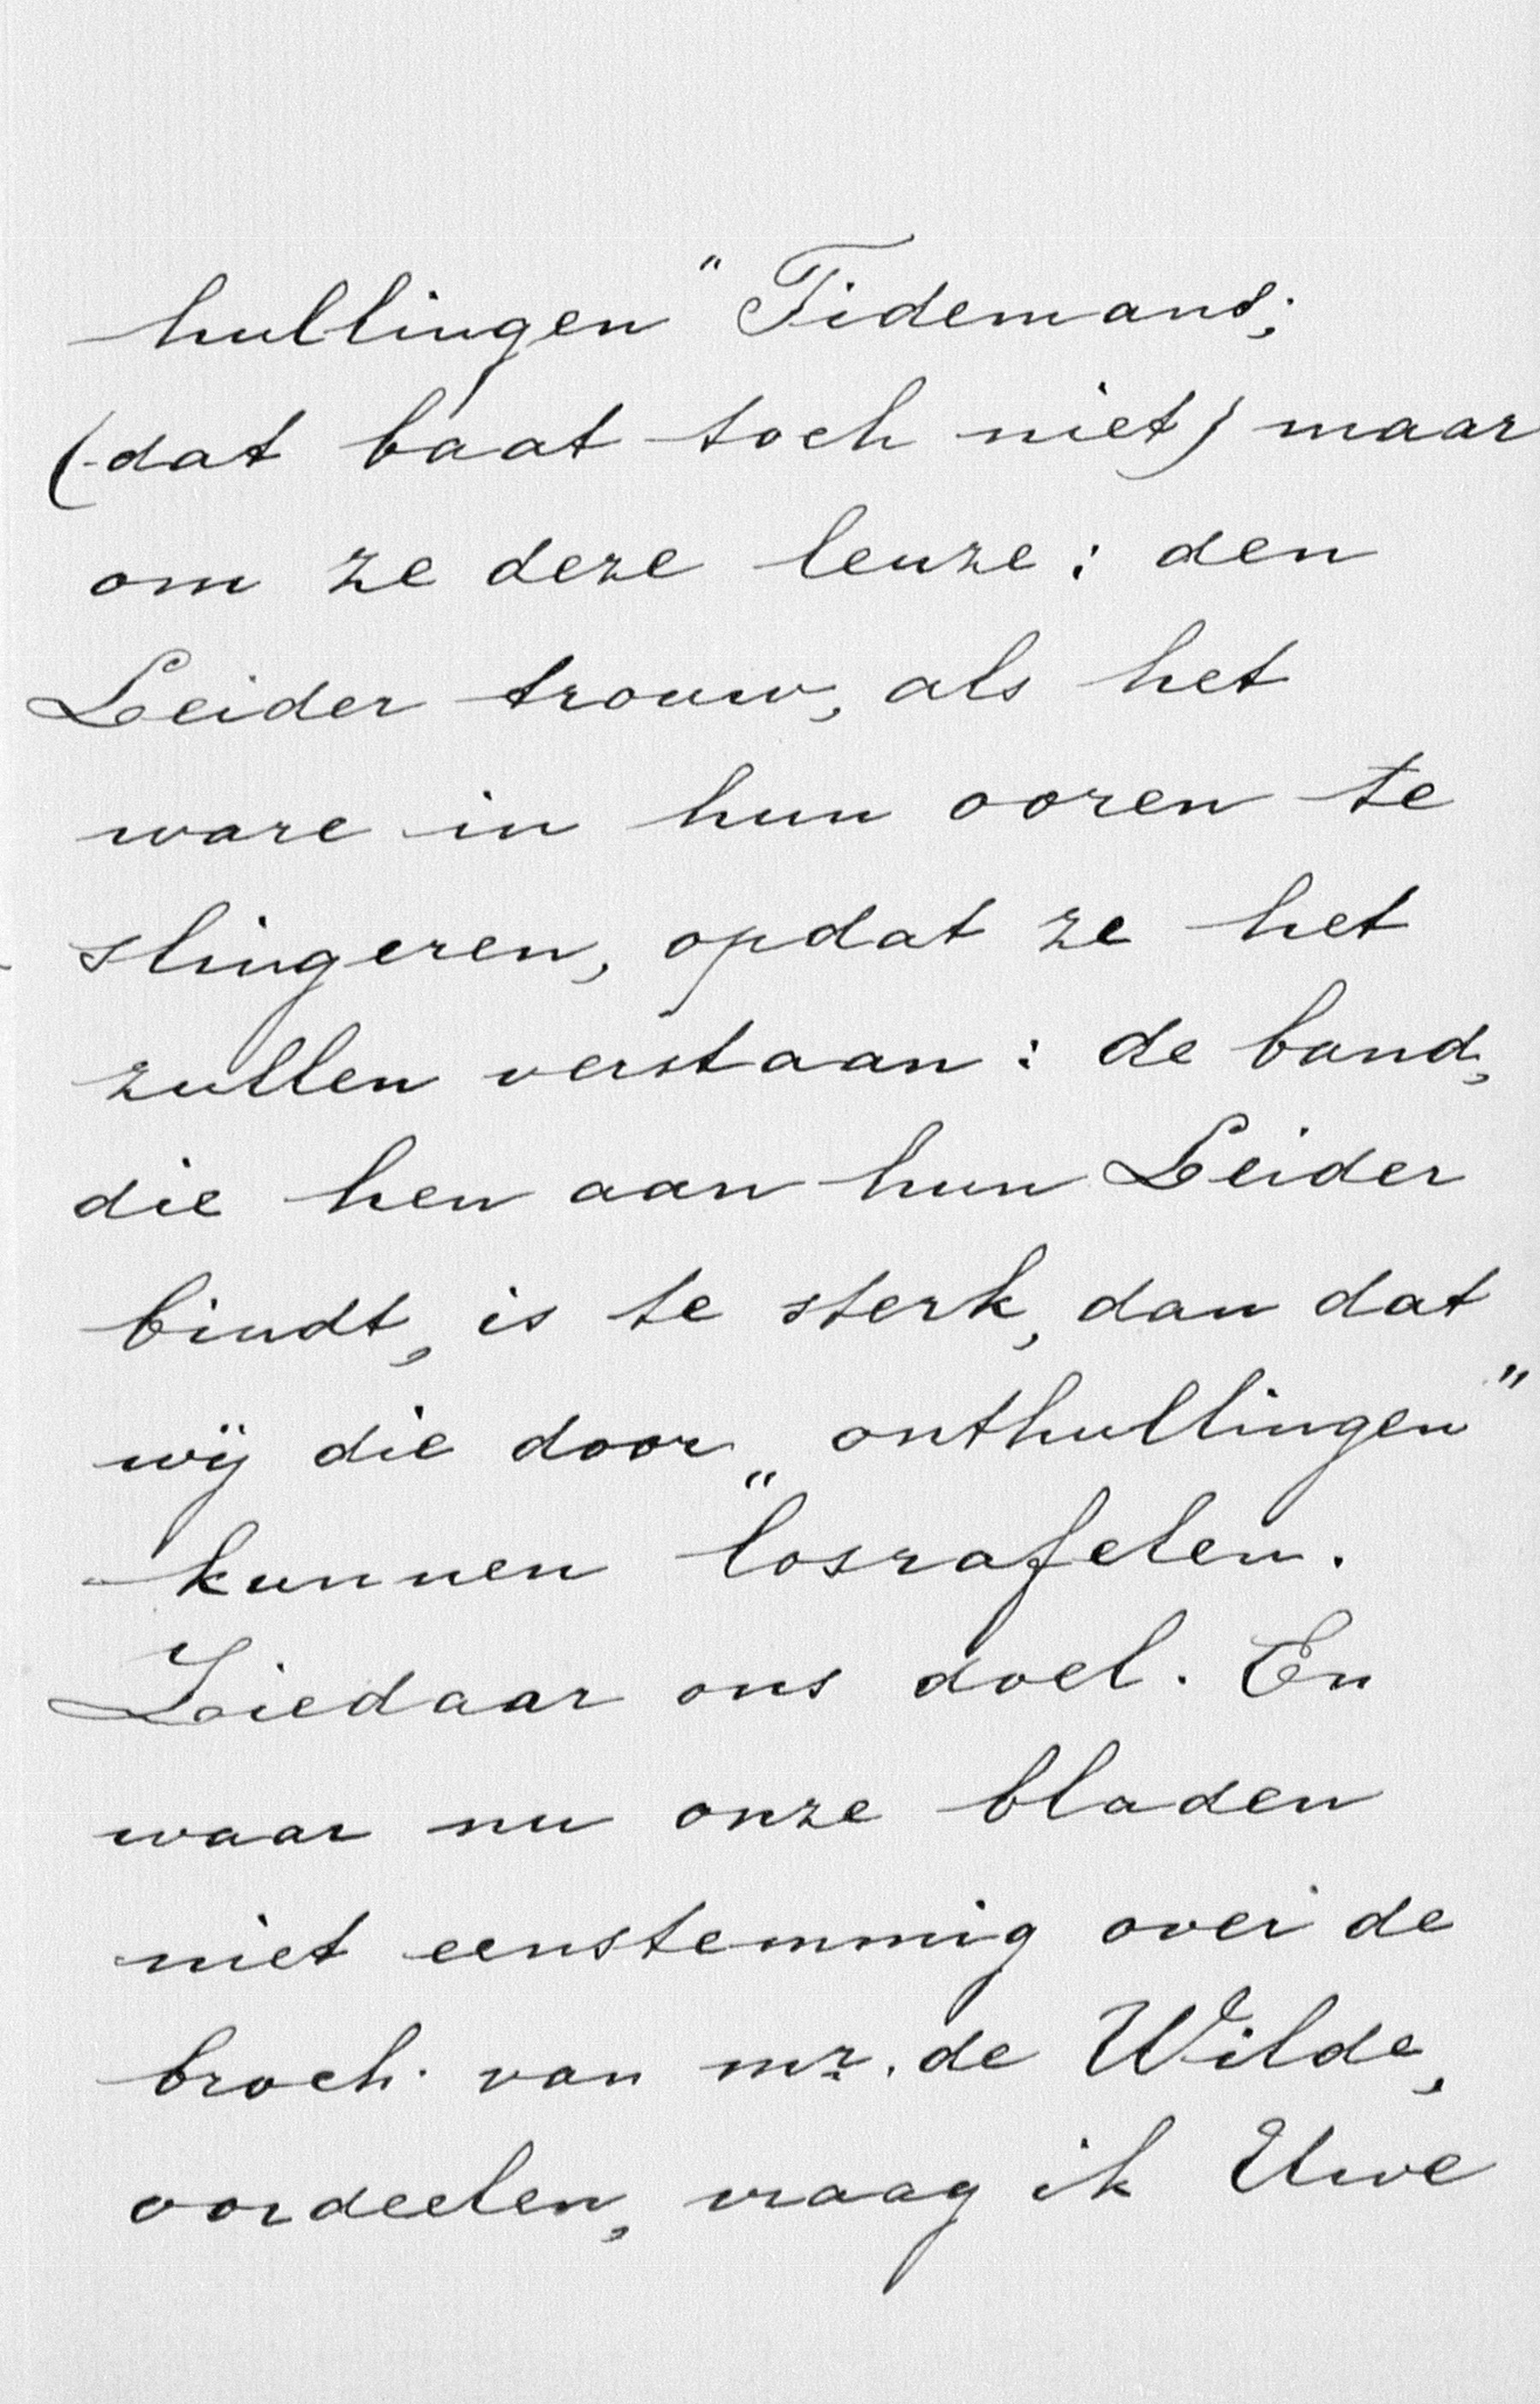 hullingen" Tidemans;
(dat baat toch niet) maar
om ze deze leuze: den
Leider trouw, als het
ware in hun ooren te
slingeren, opdat ze het
zullen verstaan: de band,
die hen aan hun Leider
bindt, is te sterk, dan dat
wij die door „onthullingen"
kunnen losrafelen.
Ziedaar ons doel. En
waar nu onze bladen
niet eenstemmig over de
broch. van mr. de Wilde,
oordeelen, vraag ik Uwe